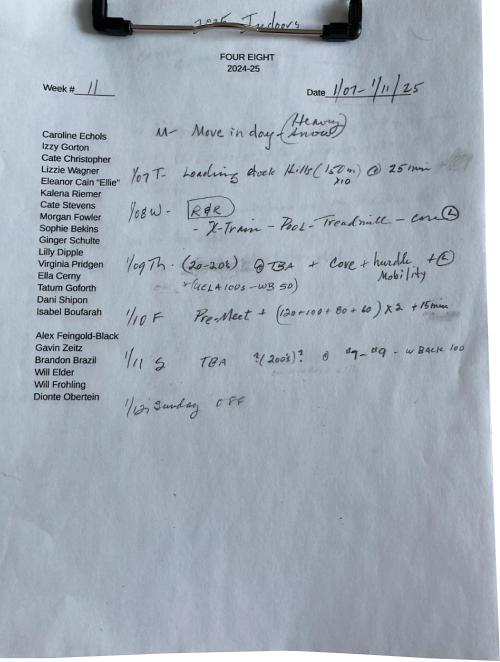 2025 Indoors
FOUR EIGHT
2024-25
Week # 11
Date 1/07 - 1/11/25
Caroline Echols
Izzy Gorton
Cate Christopher
Lizzie Wagner
Eleanor Cain "Ellie"
Kalena Riemer
Cate Stevens
Morgan Fowler
Sophie Bekins
Ginger Schulte
Lilly Dipple
Virginia Pridgen
Ella Cerny
Tatum Goforth
Dani Shipon
Isabel Boufarah
Alex Feingold-Black
Gavin Zeitz
Brandon Brazil
Will Elder
Will Frohling
Dionte Obertein
M- Move in day - (Heavy Snow)
1/07 T- Loading dock Hills (150m) @ 25min
x10
1/08 W- R&R
- X-Train - Pool - Treadmill - core
1/09 Th- (20-20s) @ TBA + core + hurdle +
Mobility
(UCLA 100s - WB 50)
1/10 F Pre-Meet + (120+100+80+60) x2 + 15min
1/11 S TBA ?(200s)? @ #7-#9 - w BACK 100
1/12 Sunday OFF